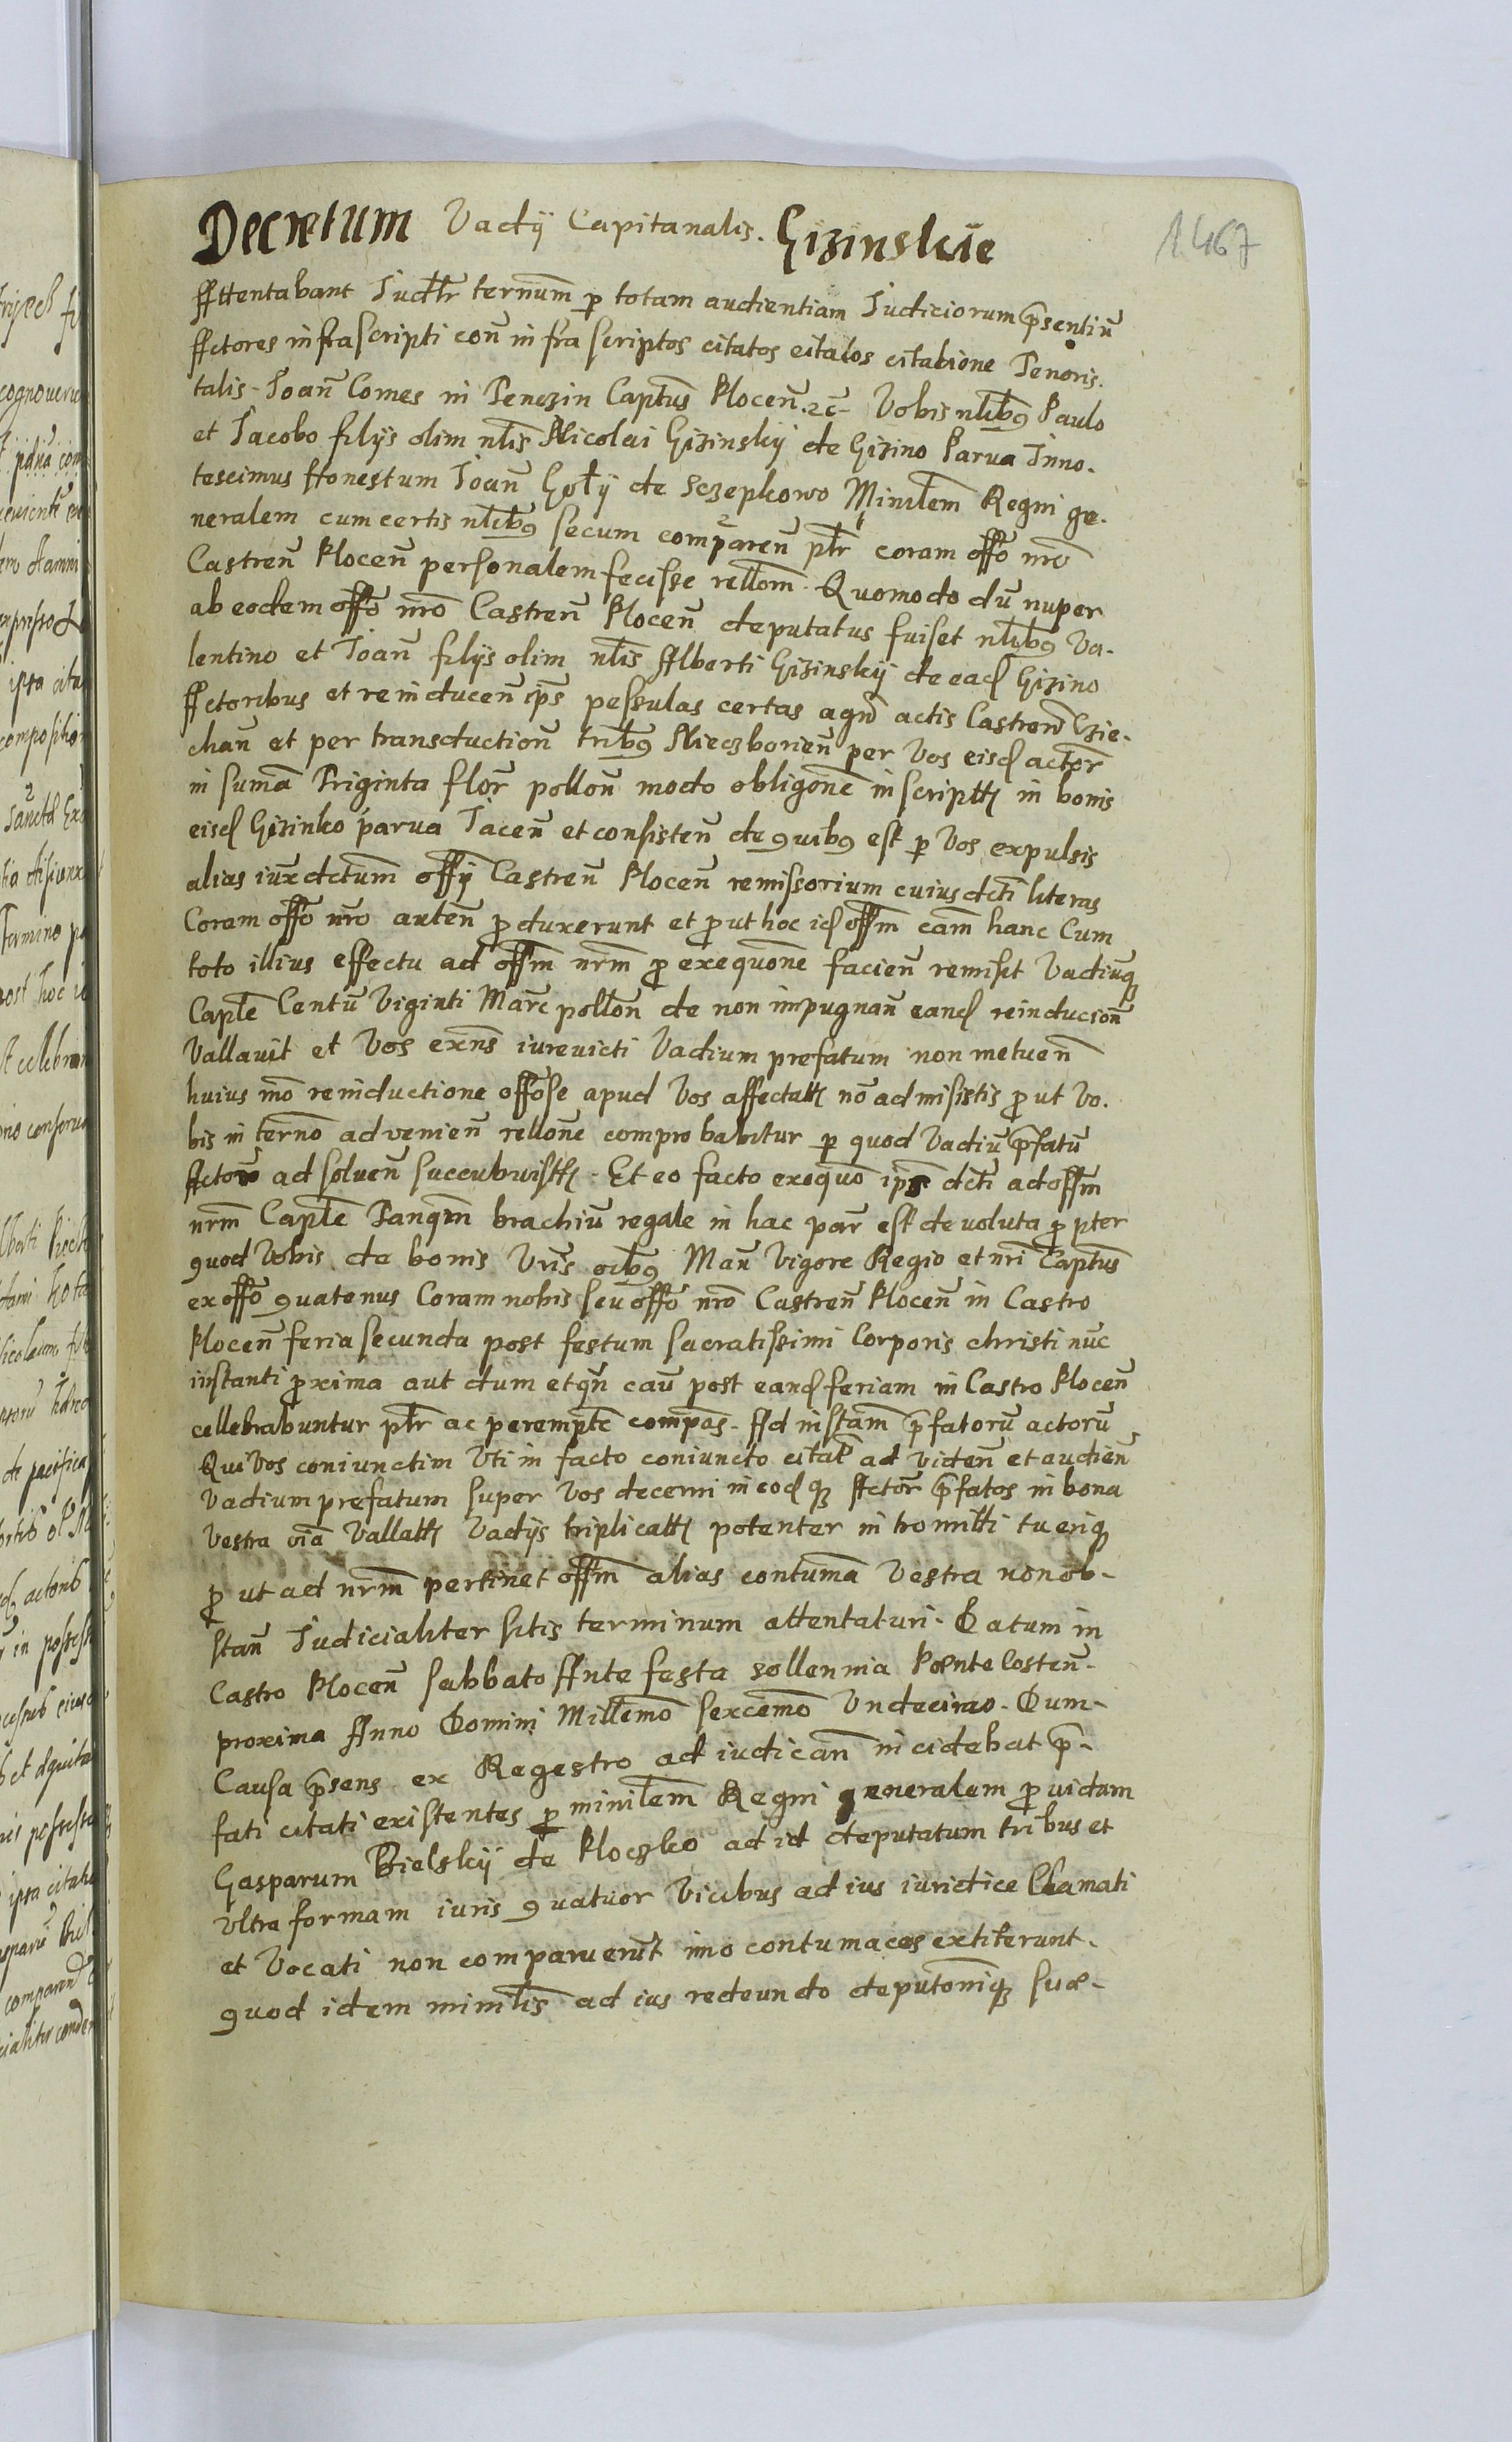 Decretum Vadij Capitanalis. Gizinskie
1467
Attentabant Judłr ternum̄ p totam audientiam Judiciorum p̄sentiū
Actores infrascripti con̄ infrascriptos citatos citatos citatione Tenoris.
talis - Joan̄ Comes in Tenczin Captūs Plocen̄. 2c̄ - Vobis nlībꝰ Paulo
et Jacobo filijs olim nlīs Nicolai Gizinskij de Gizino Parua Inno-
tescimus Honestum Joan̄ Gołij de Sczepkowo Minīlem Regni ge-
neralem cum certis nlībꝰ secum comparen̄ ptr̄ coram offō nrō
Castren̄ Plocen̄ personalem fecisse rellōm. Quomodo dū nuper
ab eodem offō nrō Castren̄ Plocen̄ deputatus fuiset nlībꝰ Va-
lentino et Joan̄ filijs olim nlīs Alberti Gizinskij de eađ Gizino
Actoribus et reinducen̄ ip̄s pessulas certas agrī actis Castren̄ Czie-
chan̄ et per transduction̄ trībꝰ Nieczborien̄ per Vos eisđ actor̄
in sumā Triginta flor̄ pollon̄ modo obligōne inscriptł in bonis
eisđ Gizinko parua Jacen̄ et consisten̄ de quibꝰ est p Vos expulsis
alias iux̄ dctum̄ offīj Castren̄ Plocen̄ remissorium cuius dctī literas
Coram offō nrō auten̄ produxerunt et prout hoc iđ offm̄ eam̄ hanc Cum
toto illius effectu ad offm̄ nrm̄ pro exequōne facien̄ remisit Vadiūqꝫ
Captłe Centū Viginti Marc̄ pollon̄ de non impugnan̄ eanđ reinducion̄
Vallauit et Vos exn̄s iurevicti Vadium prefatum non metuen̄
huius mō reinductione offōse apud Vos affectatł nō admisistis prout Vo-
bis in ternō advenien̄ rellōne comprobabitur p quod Vadiū p̄fatū
Actorō ad soluen̄ succubuistł. Et eo facto exequō ip̄s dctī ad offm̄
nrm̄ Captłe Tanqm̄ brachiū regale in hac par̄ est devoluta propter
quod Vobis de bonis Vrīs oībꝰ Man̄ Vigore Regio et nrī Captūs
ex offō quatenus Coram nobis seu offō nrō Castren̄ Plocen̄ in Castro
Plocen̄ feria secunda post festum sacratissimi Corporis christi nūc
instanti proxima aut dum et qn̄ cau̅ post eanđ feriam in Castro Plocen̄
cellebrabuntur ptr̄ ac perempte̅ compās. Ad instām p̄fatorū actorū
Qui Vos coniunctim Vti in facto coniuncto citat̄ ad viden̄ et audien̄
Vadium prefatum super Vos decerni in eođ qꝫ Actor̄ p̄fatos in bona
Vestra vīa Vallatł Vadijs triplicatł potenter intromitti tueriqꝫ
prout ad nrm̄ pertinet offm̄ alias contumā Vestra non ob-
stan̄ Judicialiter sitis terminum attentaturi. Datum in
Castro Plocen̄ Sabbato Ante festa sollennia Pentecosten̄.
proxima Anno Domini Millēmo Sexcēmo Vndecimo. Dum
Causa p̄sens ex Regestro ad iudican̄ incidebat p̄-
fati citati existentes p minīlem Regni generalem prouidum
Gasparum Bielskij de Ploczko ad id deputatum tribus et
Vltra formam iuris quatuor Vicibus ad ius iuridice Clamati
et Vocati non comparuerūt imo contumaces extiterunt.
quod idem minīlis ad ius redeundo deputōniqꝫ suæ-